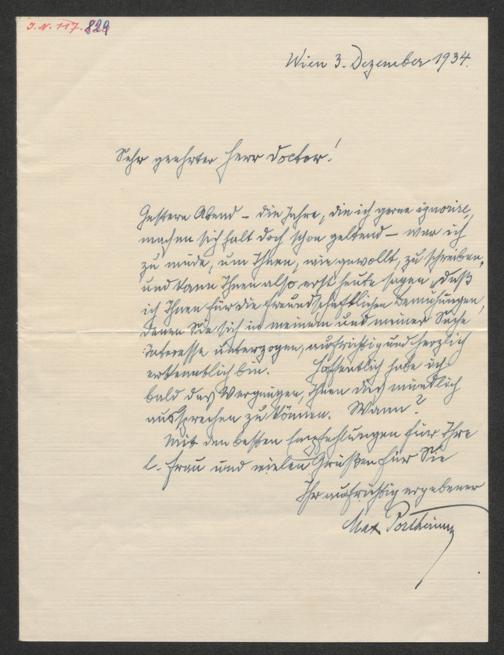 J.N. 117.829
Wien 3. Dezember 1934.
Sehr geehrter Herr Doctor!
Gestern Abend – die Jahre, die ich gerne ignorire,
machen sich halt doch schon geltend – war ich
zu müde, um Ihnen, wie gewollt, zu schreiben,
und kann Ihnen also erst heute sagen, daß
ich Ihnen für die freundschaftlichen Bemühungen,
denen Sie sich in meinem und meiner Sache
Interesse unterzogen, aufrichtig und herzlich
erkenntlich bin. Hoffentlich habe ich
bald das Vergnügen, Ihnen dies mündlich
aussprechen zu können. Wann?
Mit den besten Empfehlungen für Ihre
l. Frau und vielen Grüßen für Sie
Ihr aufrichtig ergebener
Max